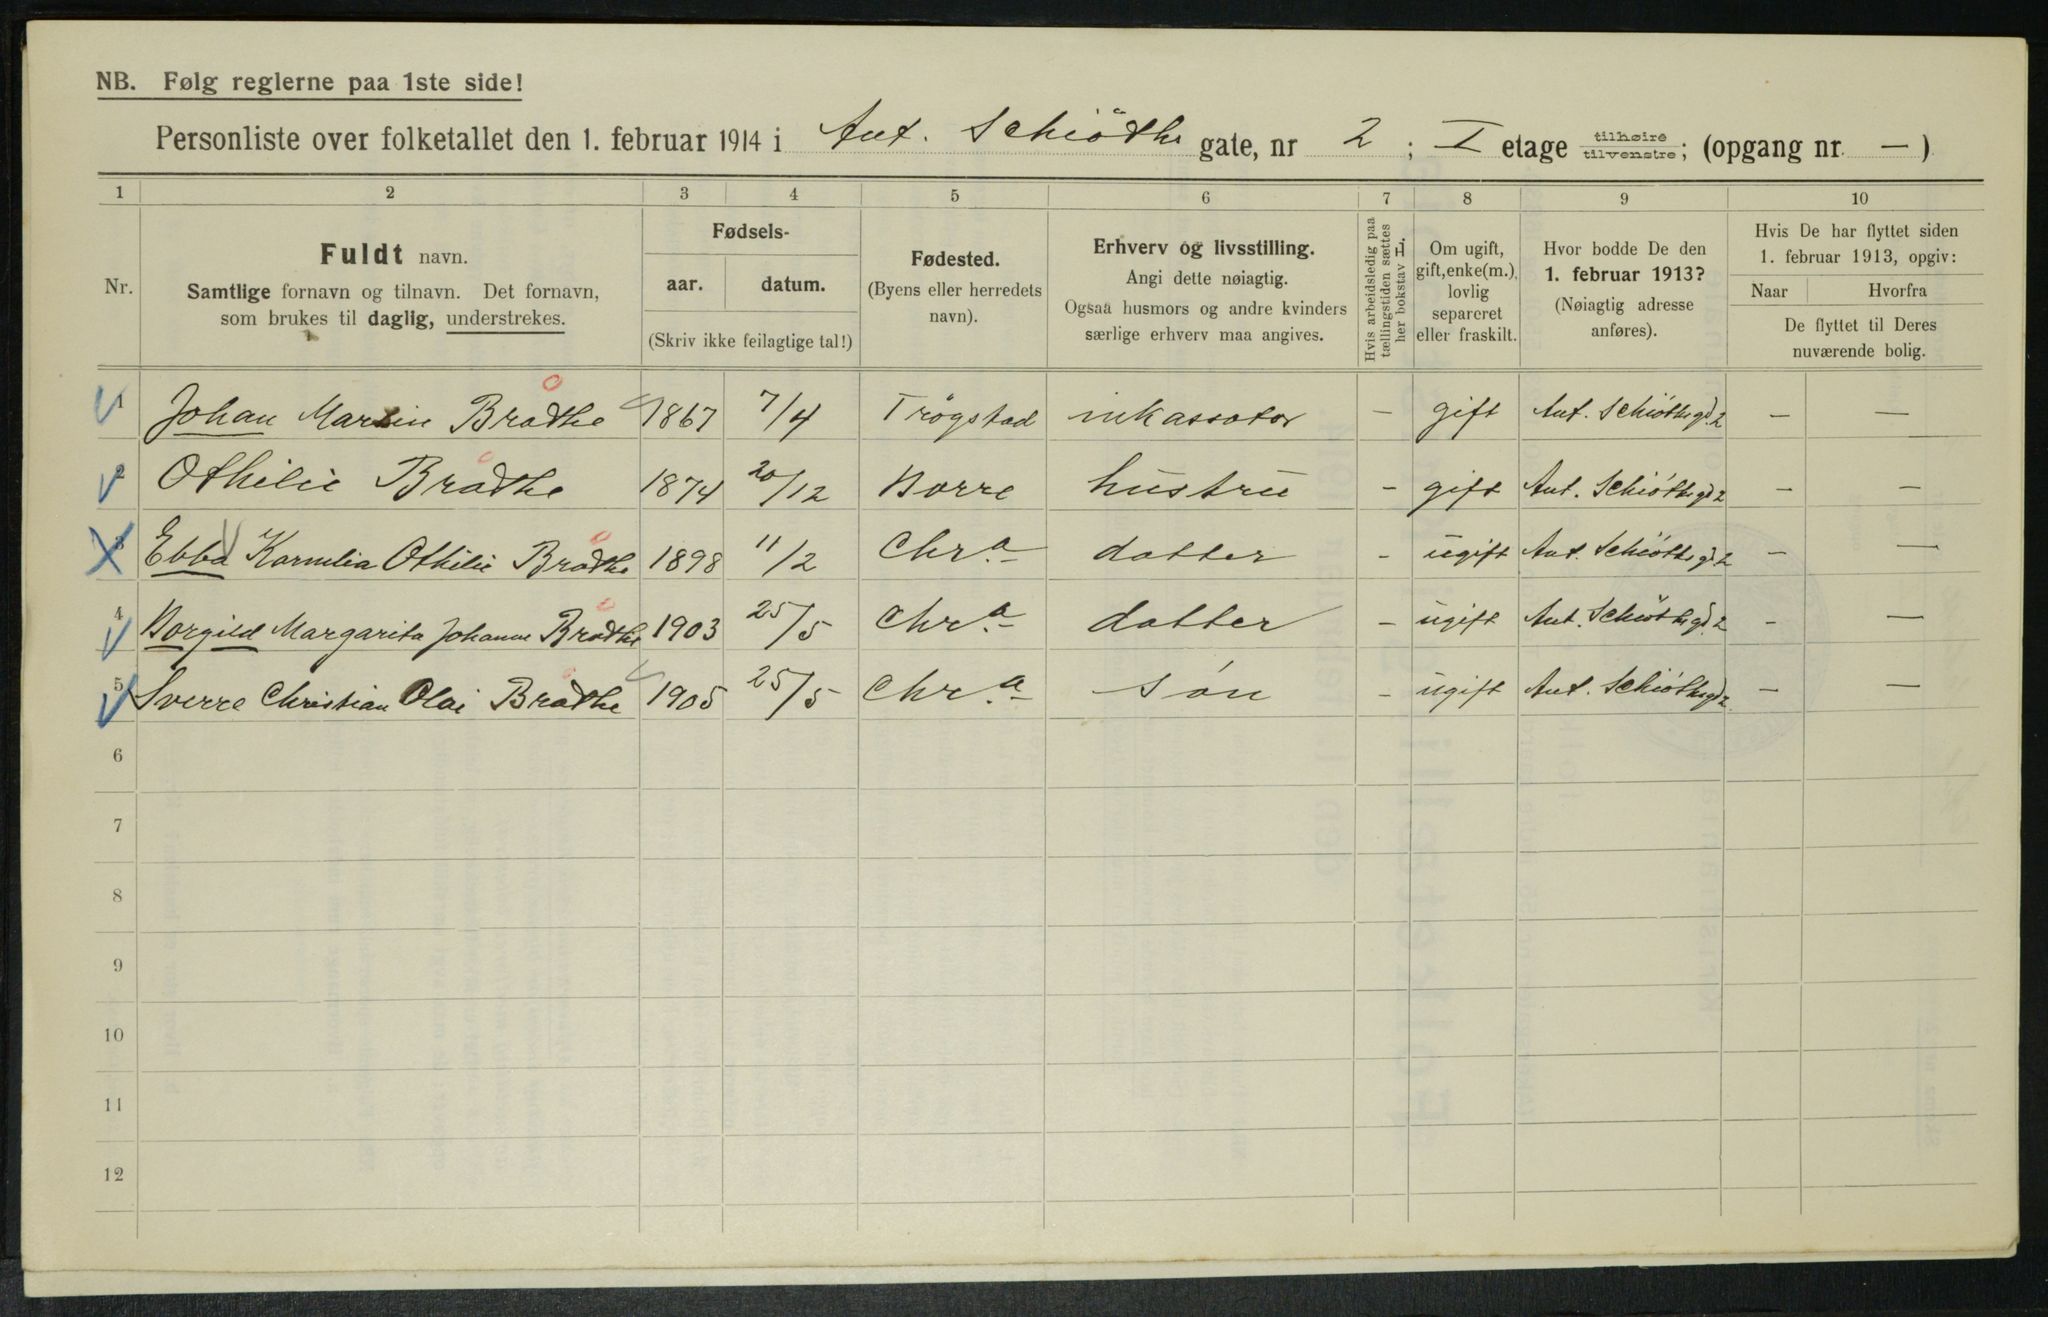 NB. Følg reglerne paa 1ste side!
Personliste over folketallet den 1. februar 1914 i Ant. Schiöths gate, nr 2; I etage tilhøire/tilvenstre; (opgang nr. —)
1 2 3 4 5 6 7 8 9 10
Nr.
Fuldt navn.
Samtlige fornavn og tilnavn. Det fornavn,
som brukes til daglig, understrekes.
Fødsels-
aar. datum.
(Skriv ikke feilagtige tal!)
Fødested.
(Byens eller herredets
navn).
Erhverv og livsstilling.
Angi dette nøiagtig.
Ogsaa husmors og andre kvinders
særlige erhverv maa angives.
Hvis arbeidsledig paa
tællingstiden sættes
her bokstav L.
Om ugift,
gift, enke(m.),
lovlig
separeret
eller fraskilt.
Hvor bodde De den
1. februar 1913?
(Nøiagtig adresse
anføres).
Hvis De har flyttet siden
1. februar 1913, opgiv:
Naar Hvorfra
De flyttet til Deres
nuværende bolig.
1 Johan Martin Brødhe 1867 7/4 Trögstad inkassator - gift Ant. Schiöthsgd. 2 — —
2 Othilie Brødhe 1874 20/12 Borre hustru - gift Ant. Schiöthsgd. 2 — —
3 Ebba Kornelia Othilie Brødhe 1898 11/2 Chr.a datter - ugift Ant. Schiöthsgd. 2 — —
4 Borgild Margarita Johanne Brødhe 1903 25/5 Chr.a datter - ugift Ant. Schiöthsgd. 2 - —
5 Sverre Christian Olai Brødhe 1905 25/5 Chr.a sön - ugift Ant. Schiöthsgd. 2 — —
6
7
8
9
10
11
12